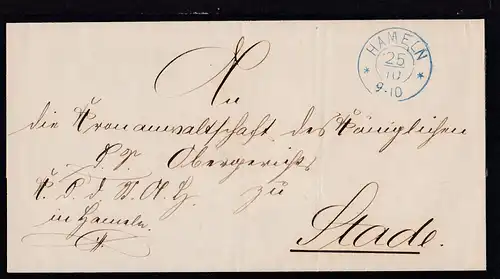 HAMELN
25
10
* 9-10 *
An
die Kronanwaltschaft des Königlichen
Obergerichts
K. zu
in Hameln.
Stade.